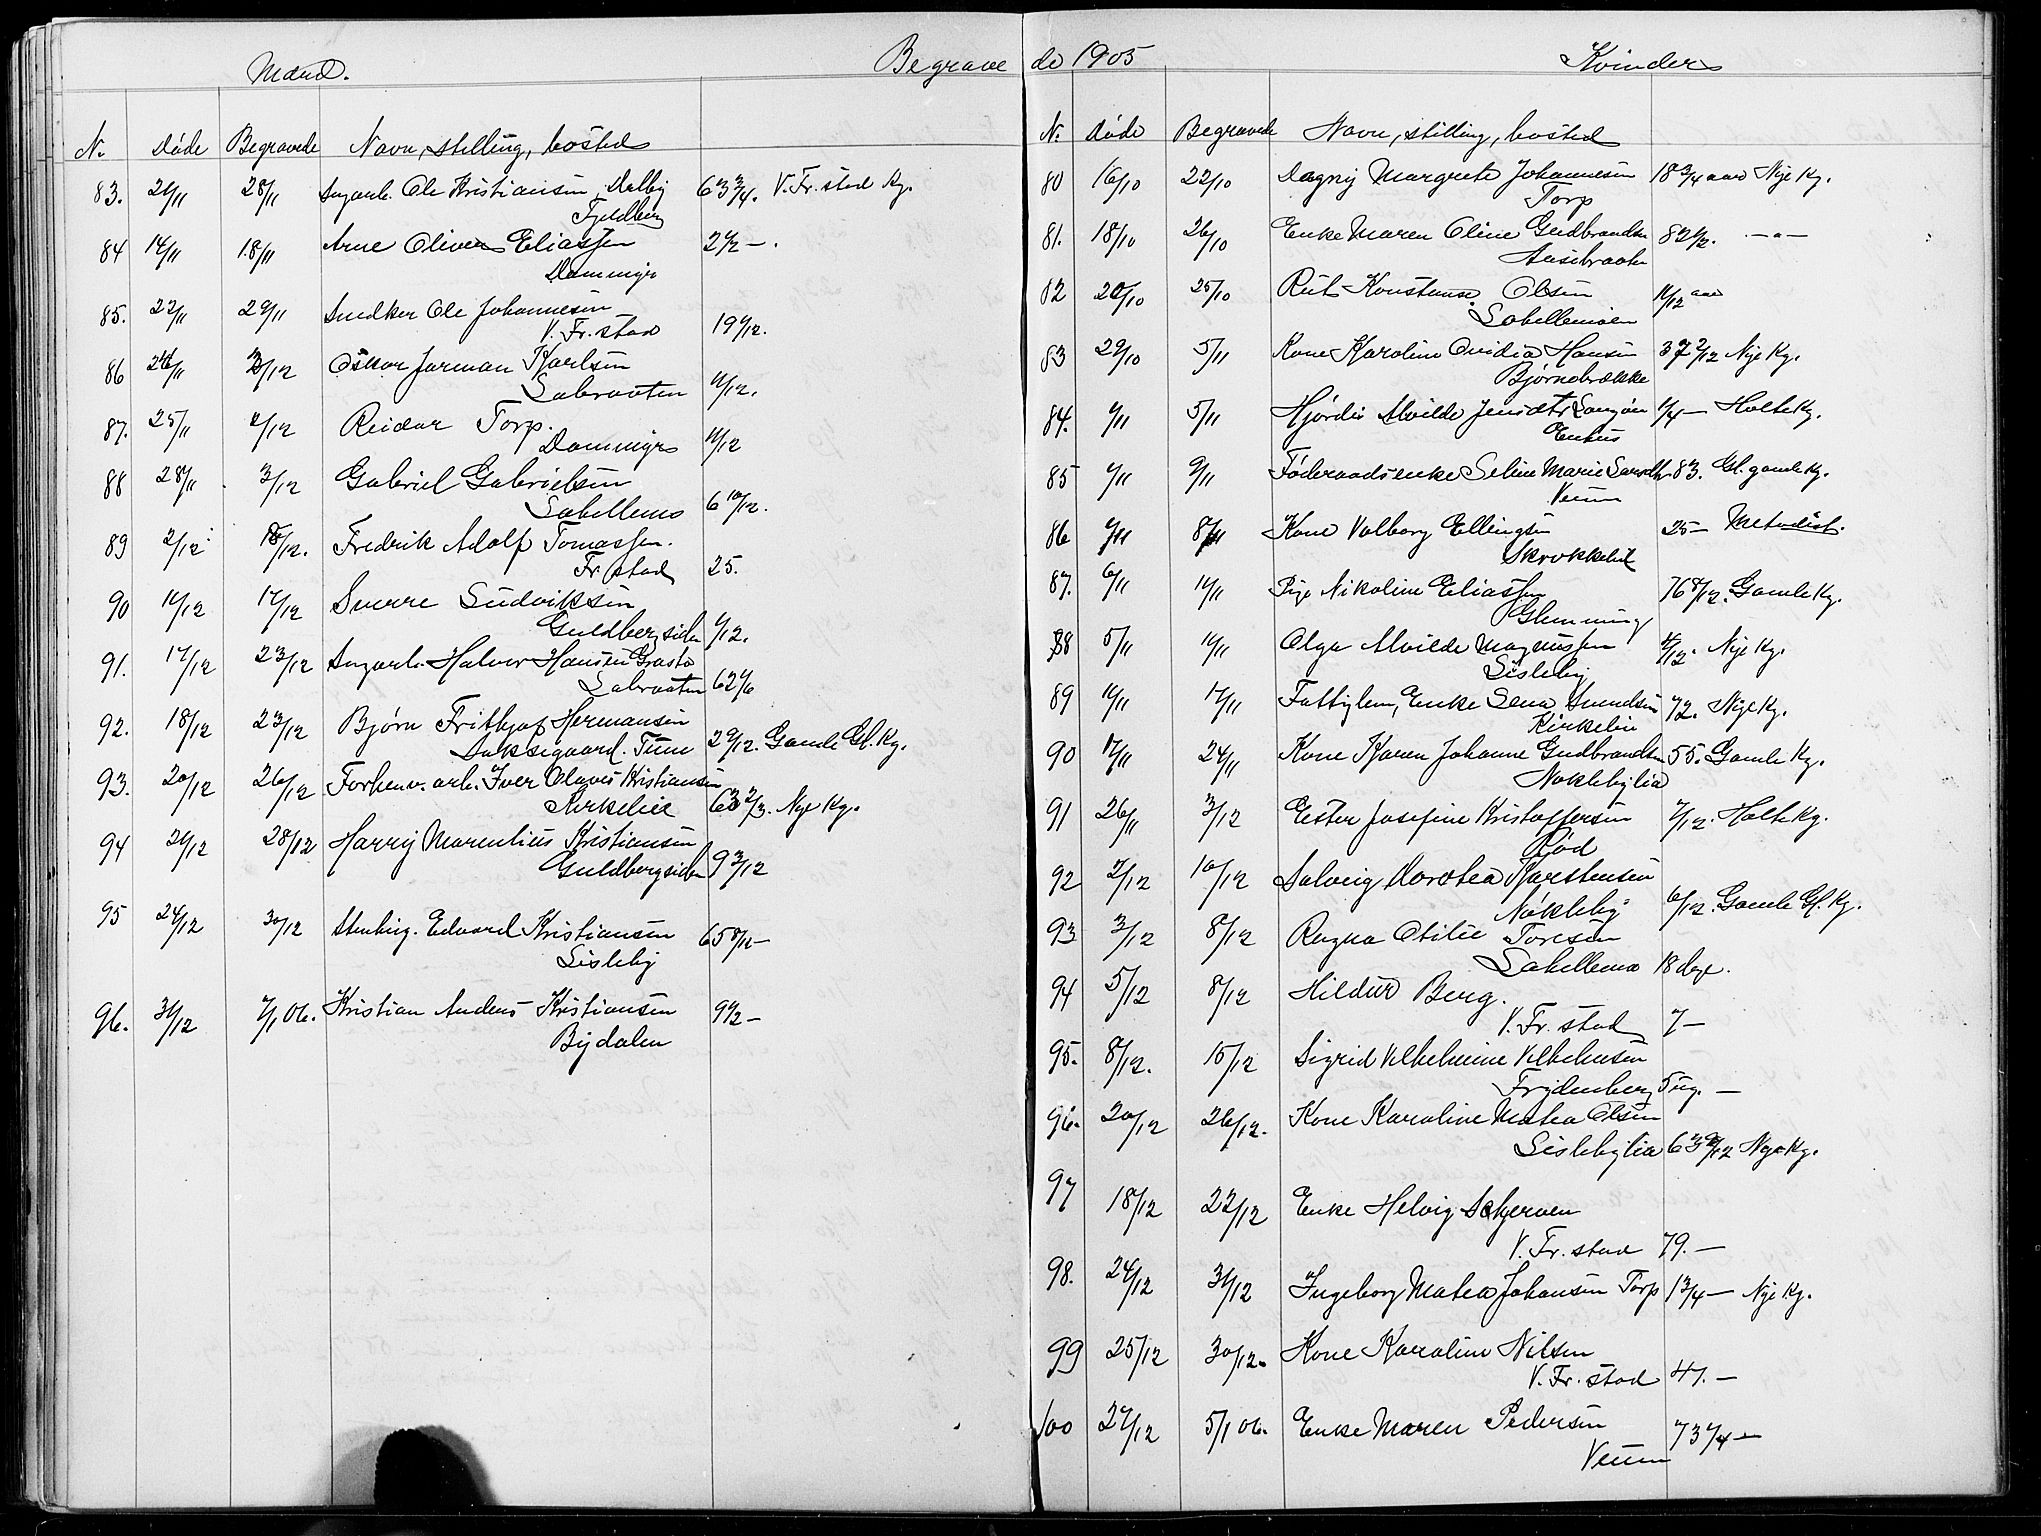 Mænd.
Begrave
N. Døde Begravede Navn, stilling, bosted
83. 21/11 28/11 Ole Kristiansen, Dalby 63 3/4. V. Fr.stad Kg.
Fjeldberg
84 14/11 18/11 Arne Oliver Eliassen 2 1/2 – .
Dammyr
85. 22/11 29/11 Snedker Ole Johannesen
V. Fr.stad 19 1/12.
86 26/11 3/12 Oskar Jarman Karlsen
Labraaten 11/12.
87. 25/11 2/12 Reidar Torp.
Dammyr 11/12
88 28/11 3/12 Gabriel Gabrielsen
Labellemo 6 10/12.
89 2/12 10/12. Fredrik Adolf Tomassen.
Fr.stad 25.
90 14/12 17/12 Sverre Ludviksen
Guldbergsiden 1/12.
91. 17/12 23/12 Halvor Hansen
Labraaten 62 1/6
92. 18/12 23/12 Bjørn Frithjof Hermansen
Tune 2 9/12. Gamle Gl. Kg.
93. 20/12 26/12 Forhenv. arb. Iver Olaves Kristiansen
Kirkelier 63 2/3. Nye Kg.
94 21/12 28/12 Harry Marentius Kristiansen
Guldbergsiden 9 3/12
95 24/12 30/12 Stenhug. Edvard Kristiansen 65 8/12 –
Lisleby
96. 31/12 7/1 06. Kristian Anders Kristiansen 9 1/2 –
Bydalen
de 1905
Kvinder
N. Døde Begravede Navn, stilling, bosted
80 16/10 22/10 Dagny Margrete Johannesen 18 3/4 aar Nye Kg.
Torp
81. 18/10 26/10 Enke Maren Oline Gudbrandsen 82 1/2. – " –
82 20/10 25/10 Rut Konstanse Olsen 11/12 aar
Labellemoen
83 29/10 5/11 Kone Karoline Ovidia Hansen 37 2/12 Nye Kg.
Bjørnebrække
84. 1/11 5/11 Hjørdis Alvilde 1/4 – Holte Kg.
Enhus
85 1/11 9/11 Føderaadsenke Seline Marie 83. Gl. gamle Kg.
Veum
86 4/11 8/11 Kone Valborg Ellingsen 25 – Metodist.
Skrokkelid
87. 6/11 11/11 Pige Nikoline Eliassen 76 8/12. Gamle Kg.
Glemminge
88 5/11 11/11 Olga Alvilde Magnussen 4/12. Nye Kg.
Lisleby
89 11/11 17/11 Fattiglem, Enke Lena Amundsen 72. Nye Kg.
Kirkelien
90 17/11 24/11 Kone Karen Johanne Gudbrandsen 55. Gamle Kg.
Noklebylia
91 26/11 3/12 Ester Josefine Kristoffersen 7/12. Holte Kg.
Rød
92 2/12 10/12 Solveig Dorotea Karstensen
Nøkleby 6/12. Gamle Gl. Kg.
93 3/12 8/12 Ragna Otilie Toresen
Labellemo 18 dage.
94 5/12 8/12 Hildur Berg.
V. Fr.stad 7 –
95. 8/12. 15/12 Sigrid Vilhelmine Vilhelmsen
Frydenberg 5 ug. –
96. 20/12 26/12. Kone Karoline Matea Olsen
Lislebylia 63 9/12 Nye Kg.
97 18/12 22/12 Enke Helvig Schjerven
V. Fr.stad 79. –
98. 24/12 31/12 Ingeborg Matea Johansen Torp 1 3/4 – Nye Kg.
99 25/12 30/12. Kone Karoline Nilsen
V. Fr.stad 47. –
100 27/12 5/1 06. Enke Maren Pedersen
Veum 73 1/4 –